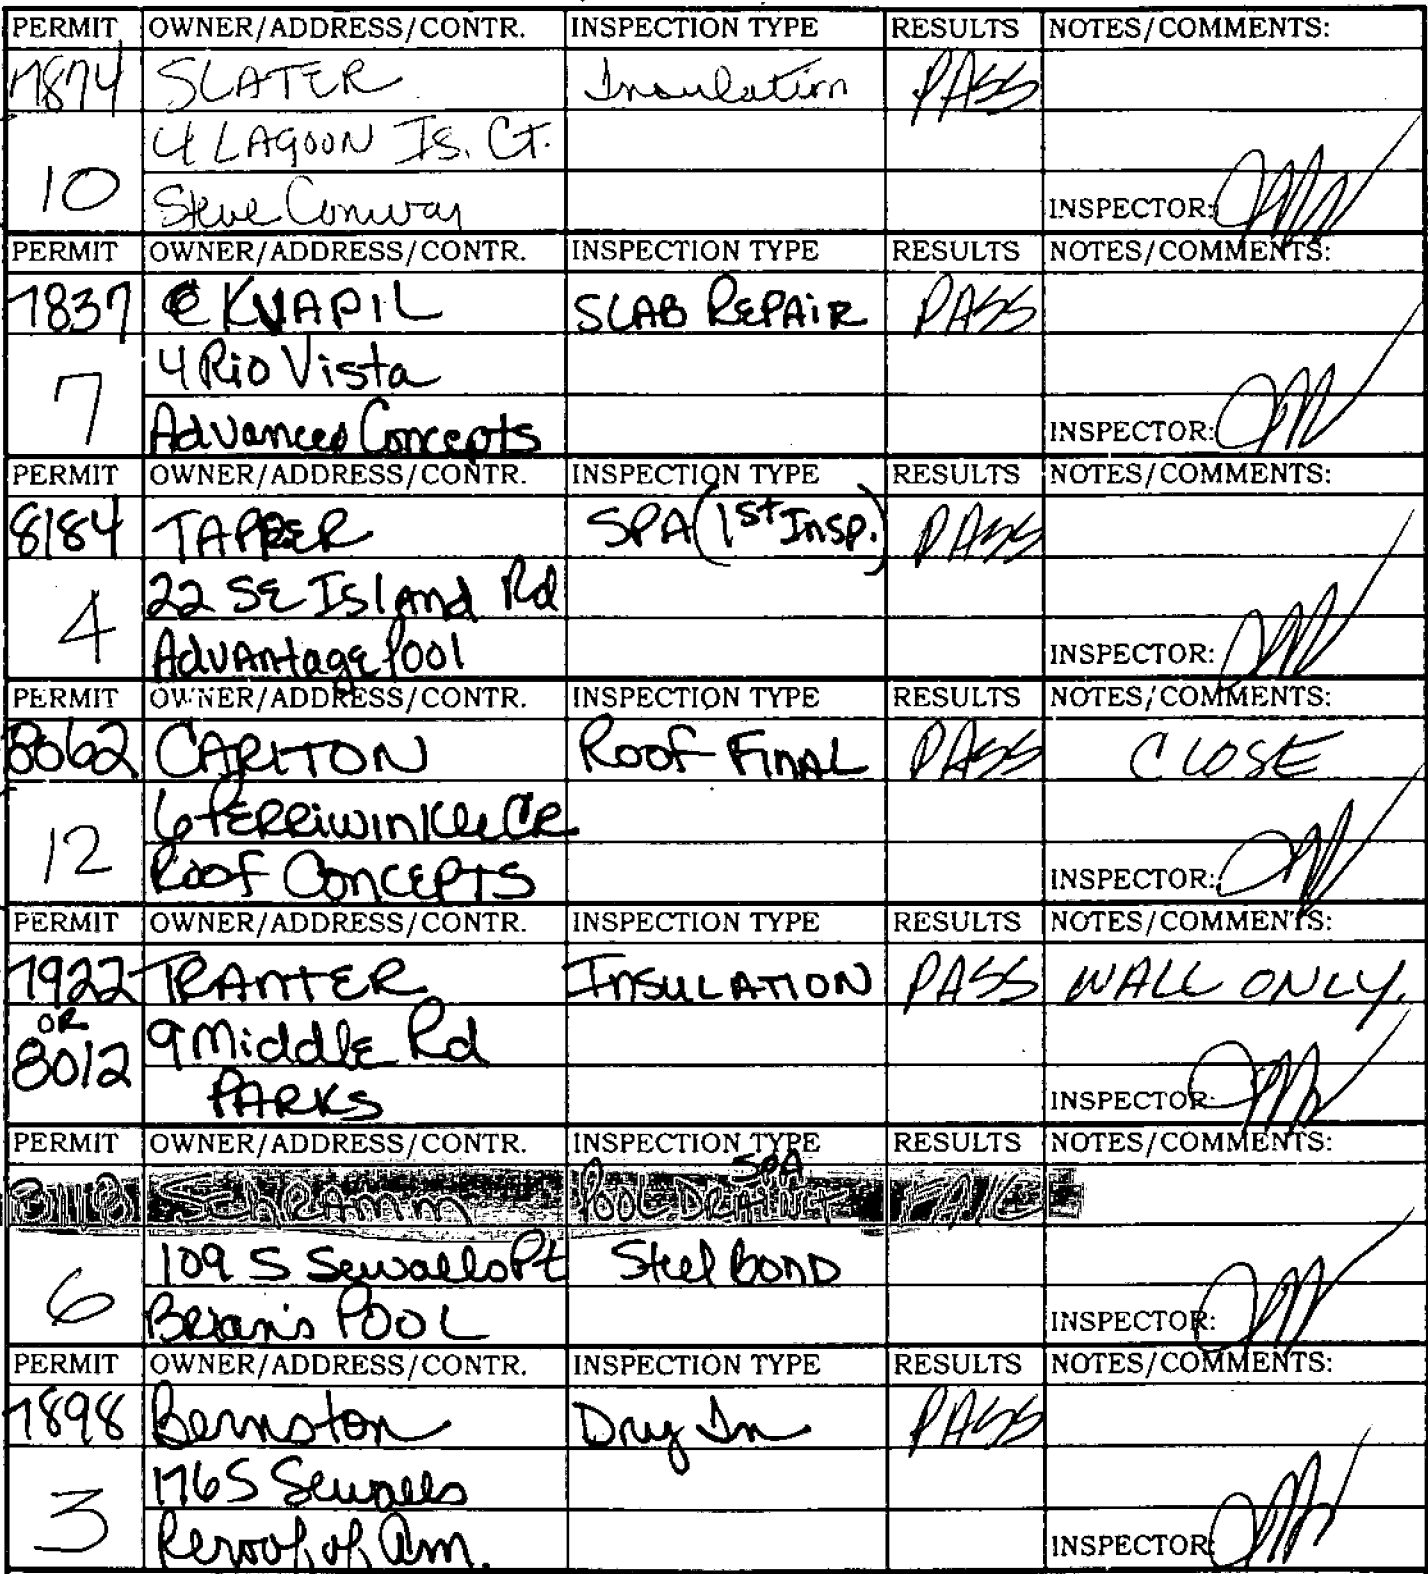 PERMIT OWNER/ADDRESS/CONTR. INSPECTION TYPE RESULTS NOTES/COMMENTS:
7874 SLATER Insulation PASS
4 LAGOON IS. CT.
10 Steve Conway INSPECTOR:
PERMIT OWNER/ADDRESS/CONTR. INSPECTION TYPE RESULTS NOTES/COMMENTS:
7837 KVAPIL SLAB REPAIR PASS
4 Rio Vista
7 Advanced Concepts INSPECTOR:
PERMIT OWNER/ADDRESS/CONTR. INSPECTION TYPE RESULTS NOTES/COMMENTS:
8184 TAPPER SPA (1st Insp.) PASS
22 SE Island Rd
4 Advantage Pool INSPECTOR:
PERMIT OWNER/ADDRESS/CONTR. INSPECTION TYPE RESULTS NOTES/COMMENTS:
8062 CARLTON Roof Final PASS CLOSE
6 PERRIWINKLE CR
12 Roof Concepts INSPECTOR:
PERMIT OWNER/ADDRESS/CONTR. INSPECTION TYPE RESULTS NOTES/COMMENTS:
7922 TRANTER INSULATION PASS WALL ONLY.
OR
8012 9 Middle Rd
PARKS INSPECTOR:
PERMIT OWNER/ADDRESS/CONTR. INSPECTION TYPE RESULTS NOTES/COMMENTS:
SCHRAMM POOL SPA FAIL
109 S Sewalls Pt Steel Bond
6 Brian's POOL INSPECTOR:
PERMIT OWNER/ADDRESS/CONTR. INSPECTION TYPE RESULTS NOTES/COMMENTS:
7898 Bernston Dry In PASS
176 S Sewalls
3 Reroof of Am. INSPECTOR: